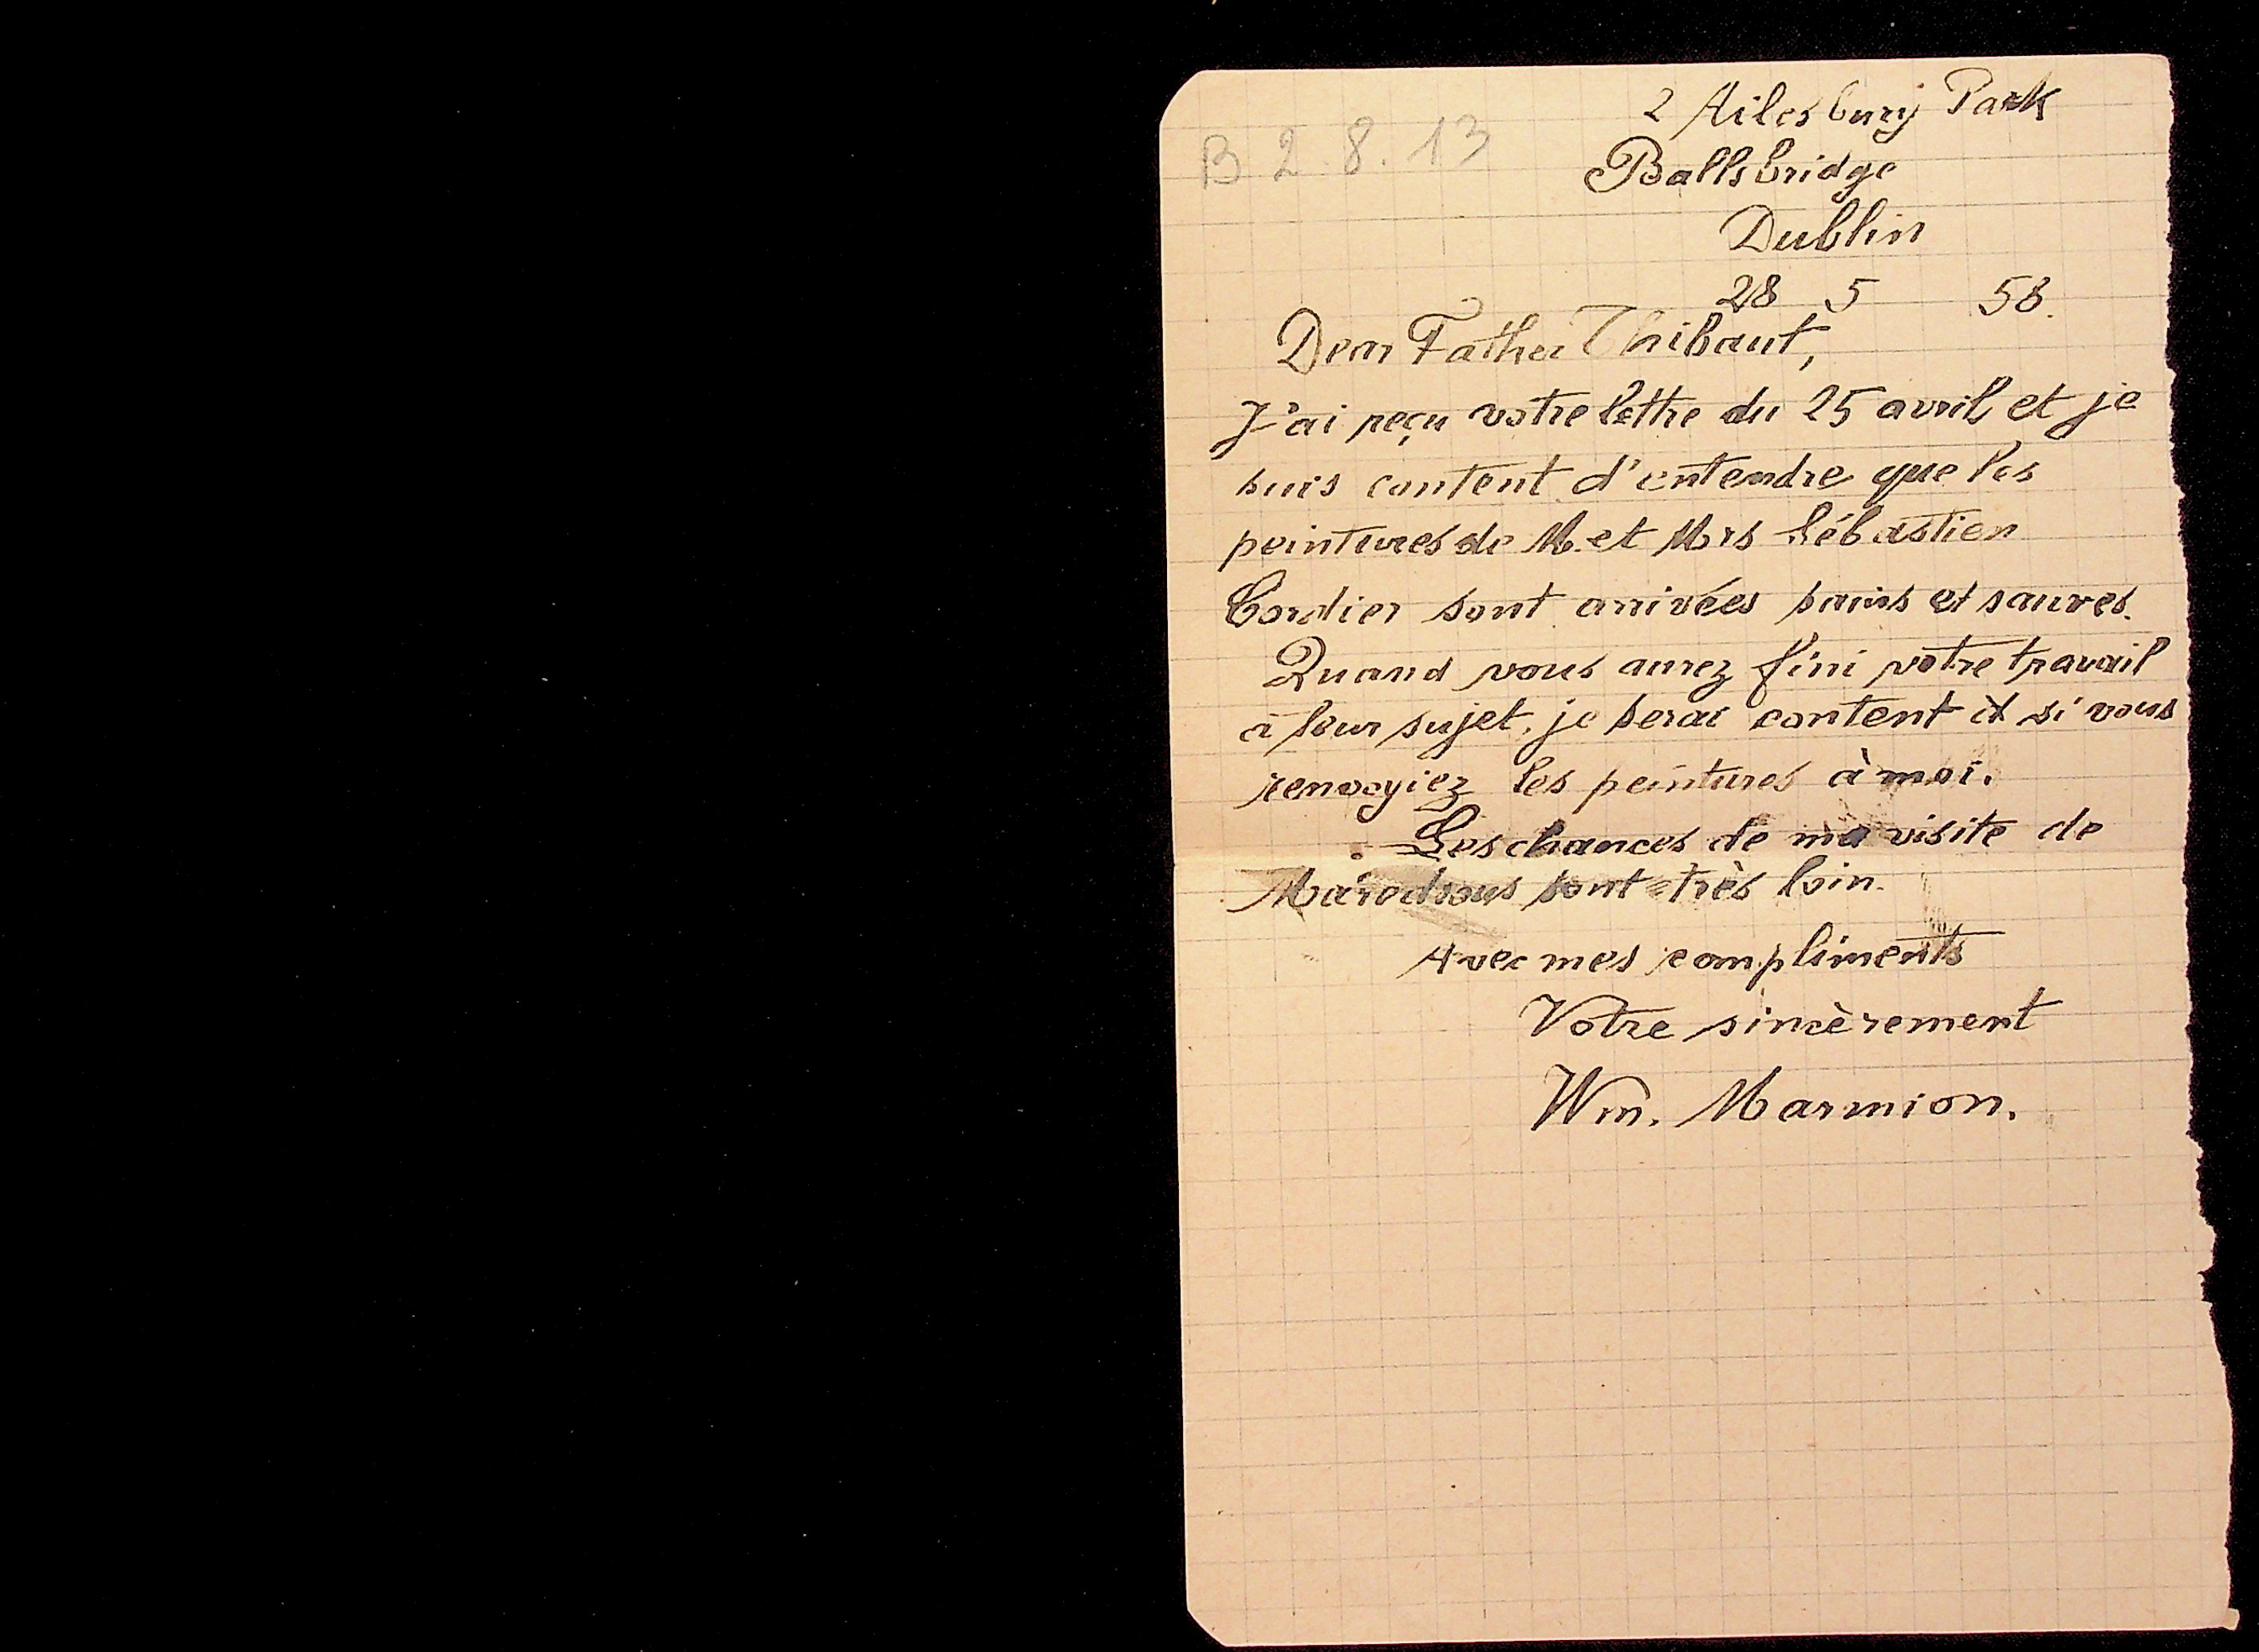 B 2.8.13
2 Ailesbury Park
Ballsbridge
Dublin
28 5 58.
Dear Father Thibaut,
J'ai reçu votre lettre du 25 avril et je
suis content d'entendre que les
peintures de M. et Mrs Sébastien
Cordier sont arrivées sains et sauves.
Quand vous aurez fini votre travail
à leur sujet, je serai content si vous
renvoyiez les peintures à moi.
Les chances de ma visite de
Maredsous sont très loin.
Avec mes compliments
Votre sincèrement
Wm. Marmion.